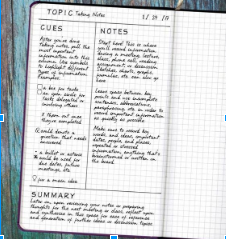 TOPIC Taking Notes
CUES
After you've done
taking notes, pull the
most important
information into this
column. Use symbols
to highlight different
types of information.
Examples:
□ a box for tasks
an open circle for
tasks delegated to
involving others
X them out once
they're completed
could denote a
question that needs
answered
• a bullet or asterisk
* could be used for
due dates, future
meetings, etc
for a main idea
NOTES
Start here! This is where
you'll record information
during a meeting, lecture,
class, phone call, reading
assignment or discussion.
Sketches, charts, graphs,
formulas, etc. can also go
here
Leave space between key
points and use incomplete
sentences, abbreviations,
paraphrasing, etc. in order to
record important information
as quickly as possible
Make sure to record key
words and ideas, important
dates, people and places,
repeated or stressed
information, anything that's
brainstormed or written on
the board.
SUMMARY
Later on, upon reviewing your notes or preparing
thoughts for the next meeting or class, reflect upon
and synthesize in this space for ease of reference
and generation of further ideas or discussion topics